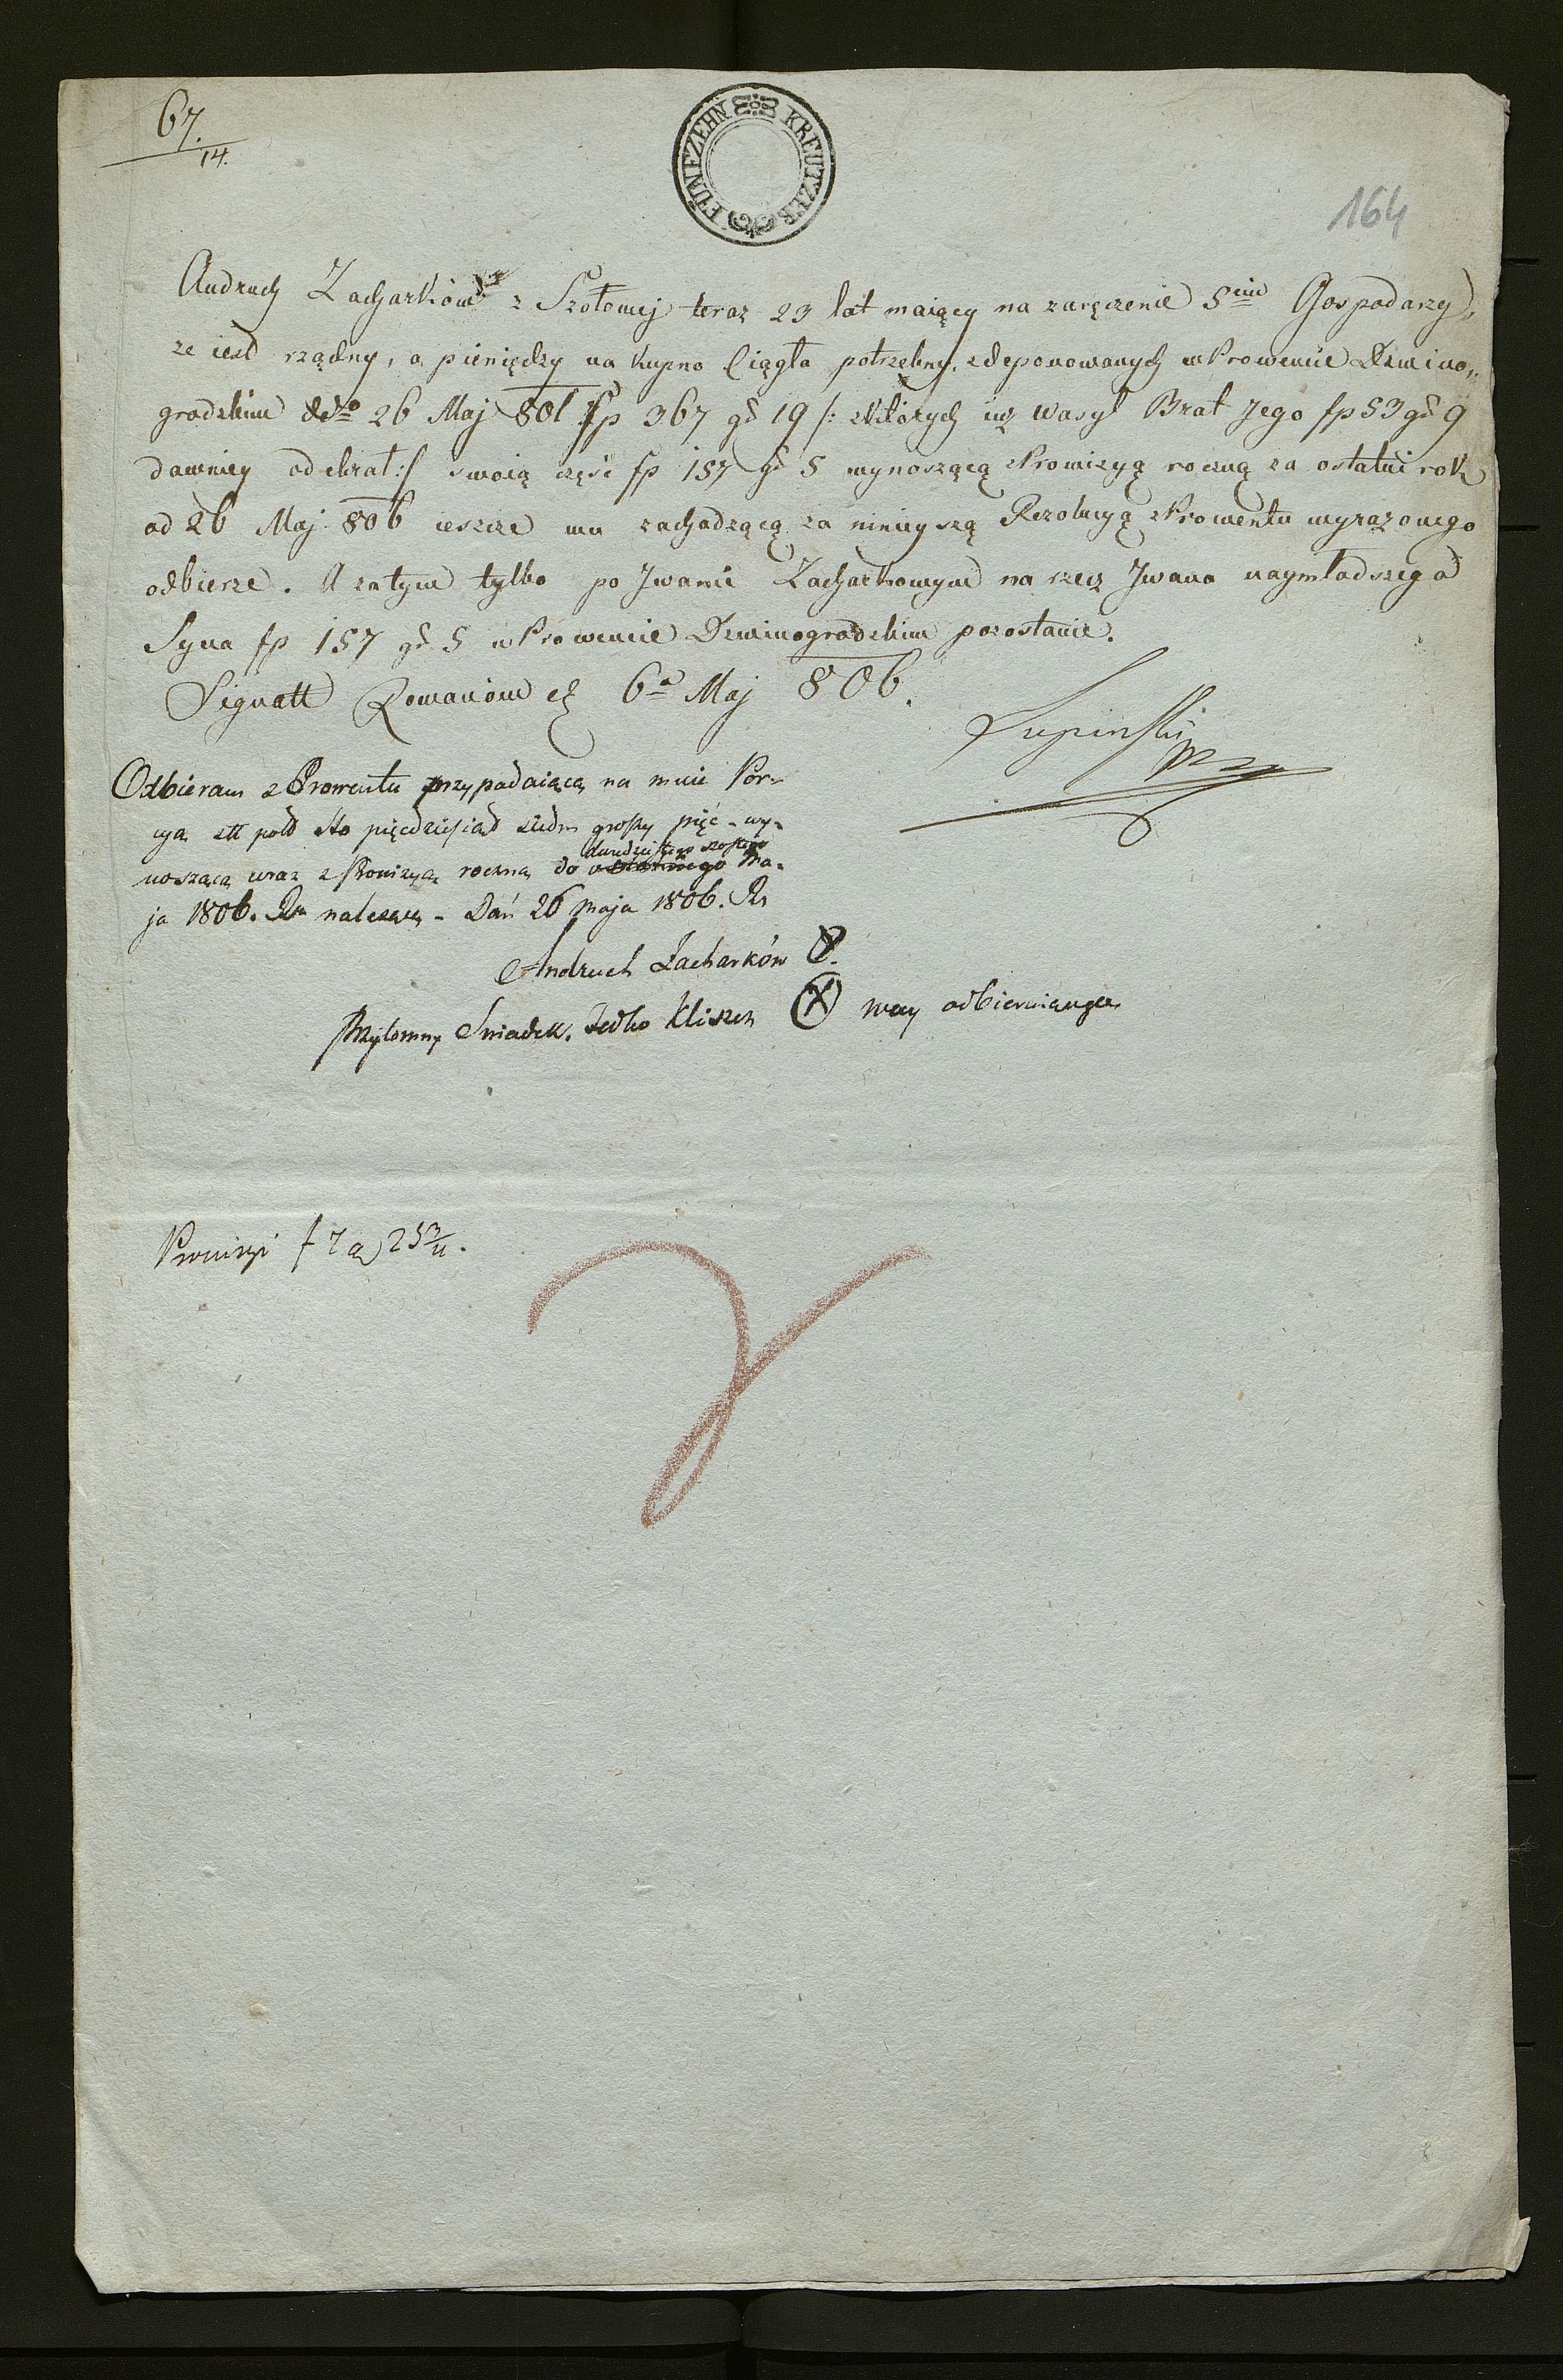 67.
14.
FÜNFZEHN KREUTZER
164
Andruch Zacharków z Szołomej teraz 23 lat maiący na zaręczenie 5ciu Gospodarzy,
ze iest rządny, a pieniędzy na kupno Ciągła potrzebny, zdeponowanych w Prowencie Dzwino„
grodzkim ddto 26 Maj 801 fp 367 gr 19 /: z których iuż Wasyl Brat Jego fp 53 gr 9
dawniey odebrał :/ swoią część fp 157 gr 5 wynoszącą z Prowizyą roczną za ostatni rok
od 26 Maj 806 ieszcze mu zachodzącą za ninieyszą Rezolucyą z Prowentu wyrażonego
odbierze. A zatym tylko po Jwanie Zacharkowym na rzecz Jwana naymłodszego
Syna fp 157 gr 5 w Prowencie Dzwinogrodzkim pozostanie.
Signatt Romanow 6a Maj 806.
Odbieram z Prowentu przypadaiącą na mnie Por-
cyą złł pold sto pięcdziesiąd siedm groszy pięć - wy-
dwudziestego szostego
noszącą wraz z Prowizyą roczną do ostatniego Ma-
ja 1806. Ru należącą - Dań 26 maja 1806. Ru
Andruch Zacharków X.
Przytomny Swiadek. Fedko Kliszcz X
Prowizyi f 7 a 25